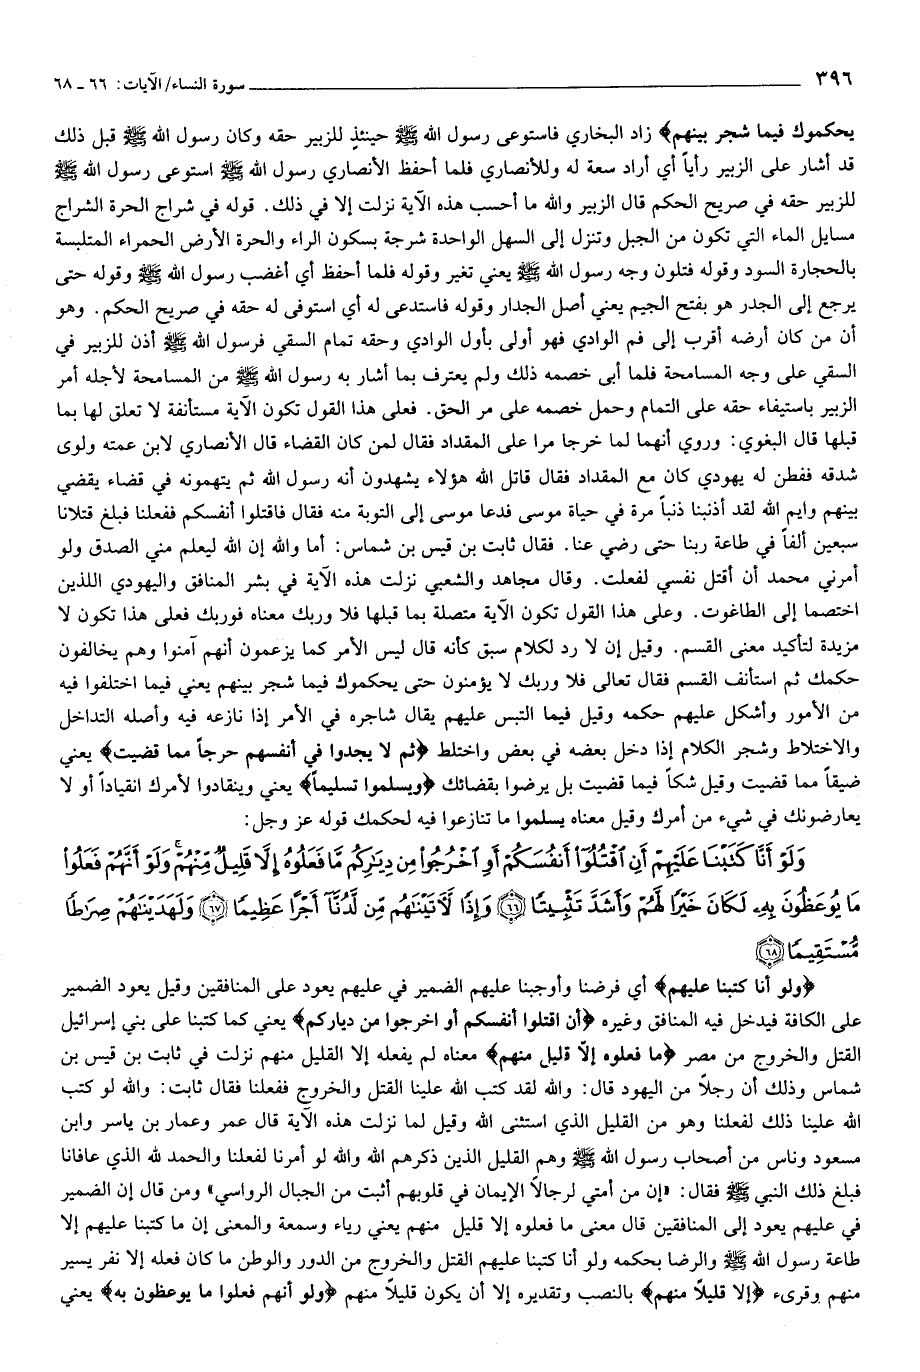 ٣٩٦ سورة النساء/ الآيات: ٦٦ ـ ٦٨
يحكموك فيما شجر بينهم﴾ زاد البخاري فاستوعى رسول الله ﷺ حينئذٍ للزبير حقه وكان رسول الله ﷺ قبل ذلك
قد أشار على الزبير رأياً أي أراد سعة له وللأنصاري فلما أحفظ الأنصاري رسول الله ﷺ استوعى رسول الله ﷺ
للزبير حقه في صريح الحكم قال الزبير والله ما أحسب هذه الآية نزلت إلا في ذلك. قوله في شراج الحرة الشراج
مسايل الماء التي تكون من الجبل وتنزل إلى السهل الواحدة شرجة بسكون الراء والحرة الأرض الحمراء المتلبسة
بالحجارة السود وقوله فتلون وجه رسول الله ﷺ يعني تغير وقوله فلما أحفظ أي أغضب رسول الله ﷺ وقوله حتى
يرجع إلى الجدر هو بفتح الجيم يعني أصل الجدار وقوله فاستدعى له أي استوفى له حقه في صريح الحكم. وهو
أن من كان أرضه أقرب إلى فم الوادي فهو أولى بأول الوادي وحقه تمام السقي فرسول الله ﷺ أذن للزبير في
السقي على وجه المسامحة فلما أبى خصمه ذلك ولم يعترف بما أشار به رسول الله ﷺ من المسامحة لأجله أمر
الزبير باستيفاء حقه على التمام وحمل خصمه على مر الحق. فعلى هذا القول تكون الآية مستأنفة لا تعلق لها بما
قبلها قال البغوي: وروي أنهما لما خرجا مرا على المقداد فقال لمن كان القضاء قال الأنصاري لابن عمته ولوى
شدقه ففطن له يهودي كان مع المقداد فقال قاتل الله هؤلاء يشهدون أنه رسول الله ثم يتهمونه في قضاء يقضي
بينهم وايم الله لقد أذنبنا ذنباً مرة في حياة موسى فدعا موسى إلى التوبة منه فقال فاقتلوا أنفسكم ففعلنا فبلغ قتلانا
سبعين ألفاً في طاعة ربنا حتى رضي عنا. فقال ثابت بن قيس بن شماس: أما والله إن الله ليعلم مني الصدق ولو
أمرني محمد أن أقتل نفسي لفعلت. وقال مجاهد والشعبي نزلت هذه الآية في بشر المنافق واليهودي اللذين
اختصما إلى الطاغوت. وعلى هذا القول تكون الآية متصلة بما قبلها فلا وربك معناه فوربك فعلى هذا تكون لا
مزيدة لتأكيد معنى القسم. وقيل إن لا رد لكلام سبق كأنه قال ليس الأمر كما يزعمون أنهم آمنوا وهم يخالفون
حكمك ثم استأنف القسم فقال تعالى فلا وربك لا يؤمنون حتى يحكموك فيما شجر بينهم يعني فيما اختلفوا فيه
من الأمور وأشكل عليهم حكمه وقيل فيما التبس عليهم يقال شاجره في الأمر إذا نازعه فيه وأصله التداخل
والاختلاط وشجر الكلام إذا دخل بعضه في بعض واختلط ﴿ثم لا يجدوا في أنفسهم حرجاً مما قضيت﴾ يعني
ضيقاً مما قضيت وقيل شكاً فيما قضيت بل يرضوا بقضائك ﴿ويسلموا تسليماً﴾ يعني وينقادوا لأمرك انقياداً أو لا
يعارضونك في شيء من أمرك وقيل معناه يسلموا ما تنازعوا فيه لحكمك قوله عز وجل:
وَلَوْ أَنَّا كَتَبْنَا عَلَيْهِمْ أَنِ ٱقْتُلُوٓا۟ أَنفُسَكُمْ أَوِ ٱخْرُجُوا۟ مِن دِيَـٰرِكُم مَّا فَعَلُوهُ إِلَّا قَلِيلٌ مِّنْهُمْ ۖ وَلَوْ أَنَّهُمْ فَعَلُوا۟
مَا يُوعَظُونَ بِهِۦ لَكَانَ خَيْرًا لَّهُمْ وَأَشَدَّ تَثْبِيتًا ﴿٦٦﴾ وَإِذًا لَّـَٔاتَيْنَـٰهُم مِّن لَّدُنَّآ أَجْرًا عَظِيمًا ﴿٦٧﴾ وَلَهَدَيْنَـٰهُمْ صِرَٰطًا
مُّسْتَقِيمًا ﴿٦٨﴾
﴿ولو أنا كتبنا عليهم﴾ أي فرضنا وأوجبنا عليهم الضمير في عليهم يعود على المنافقين وقيل يعود الضمير
على الكافة فيدخل فيه المنافق وغيره ﴿أن اقتلوا أنفسكم أو اخرجوا من دياركم﴾ يعني كما كتبنا على بني إسرائيل
القتل والخروج من مصر ﴿ما فعلوه إلاّ قليل منهم﴾ معناه لم يفعله إلا القليل منهم نزلت في ثابت بن قيس بن
شماس وذلك أن رجلاً من اليهود قال: والله لقد كتب الله علينا القتل والخروج ففعلنا فقال ثابت: والله لو كتب
الله علينا ذلك لفعلنا وهو من القليل الذي استثنى الله وقيل لما نزلت هذه الآية قال عمر وعمار بن ياسر وابن
مسعود وناس من أصحاب رسول الله ﷺ وهم القليل الذين ذكرهم الله والله لو أمرنا لفعلنا والحمد لله الذي عافانا
فبلغ ذلك النبي ﷺ فقال: «إن من أمتي لرجالاً الإيمان في قلوبهم أثبت من الجبال الرواسي» ومن قال إن الضمير
في عليهم يعود إلى المنافقين قال معنى ما فعلوه إلا قليل منهم يعني رياء وسمعة والمعنى إن ما كتبنا عليهم إلا
طاعة رسول الله ﷺ والرضا بحكمه ولو أنا كتبنا عليهم القتل والخروج من الدور والوطن ما كان فعله إلا نفر يسير
منهم وقرىء ﴿إلا قليلاً منهم﴾ بالنصب وتقديره إلا أن يكون قليلاً منهم ﴿ولو أنهم فعلوا ما يوعظون به﴾ يعني